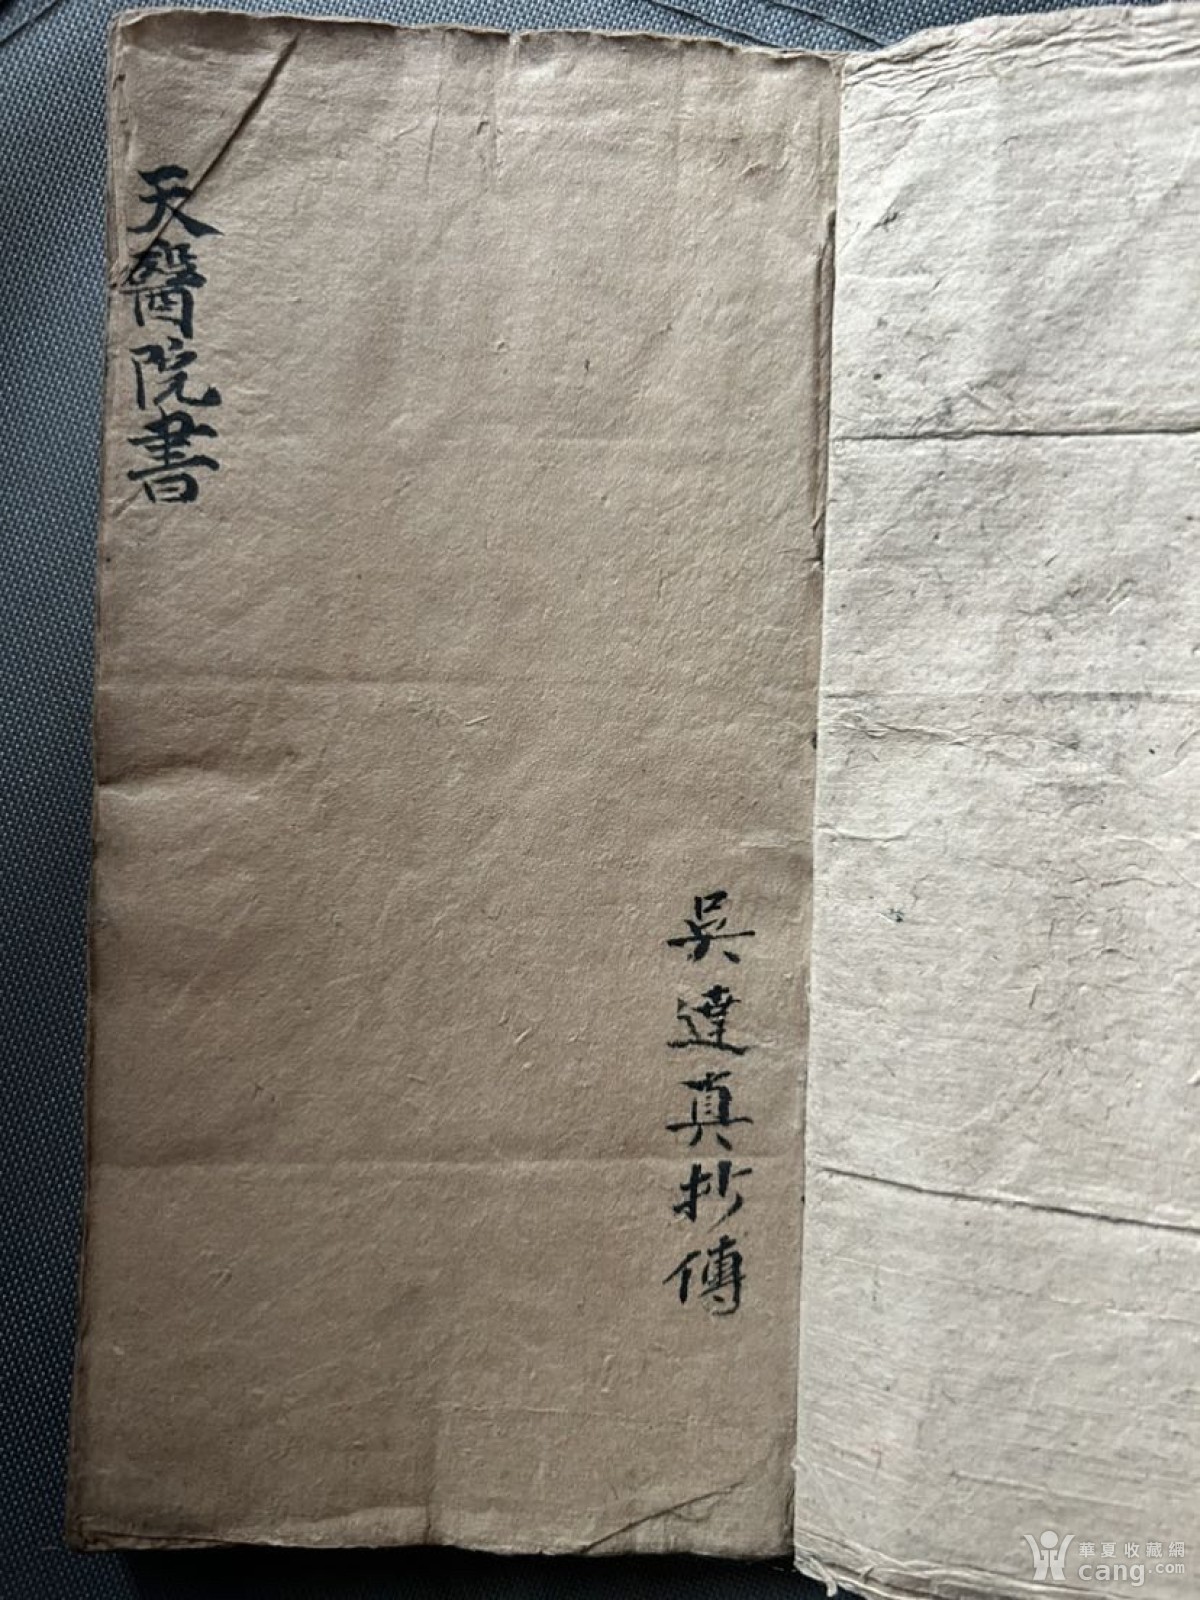 天醫院書
吳達真抄傳
華夏收藏網
cang.com